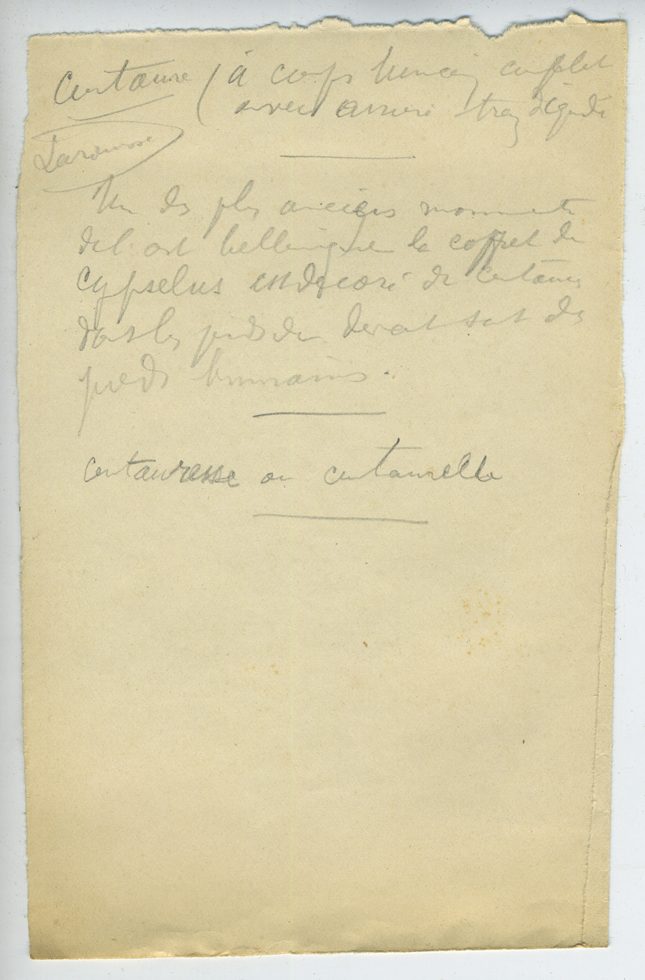 Centaure (à corps humain complet
avec arrière train
Larousse
Un des plus anciens monuments
de l'art hellénique le coffret de
Cypselus est décoré de centaures
dont les pieds de devant sont des
pieds humains.
centauresse ou centaurelle